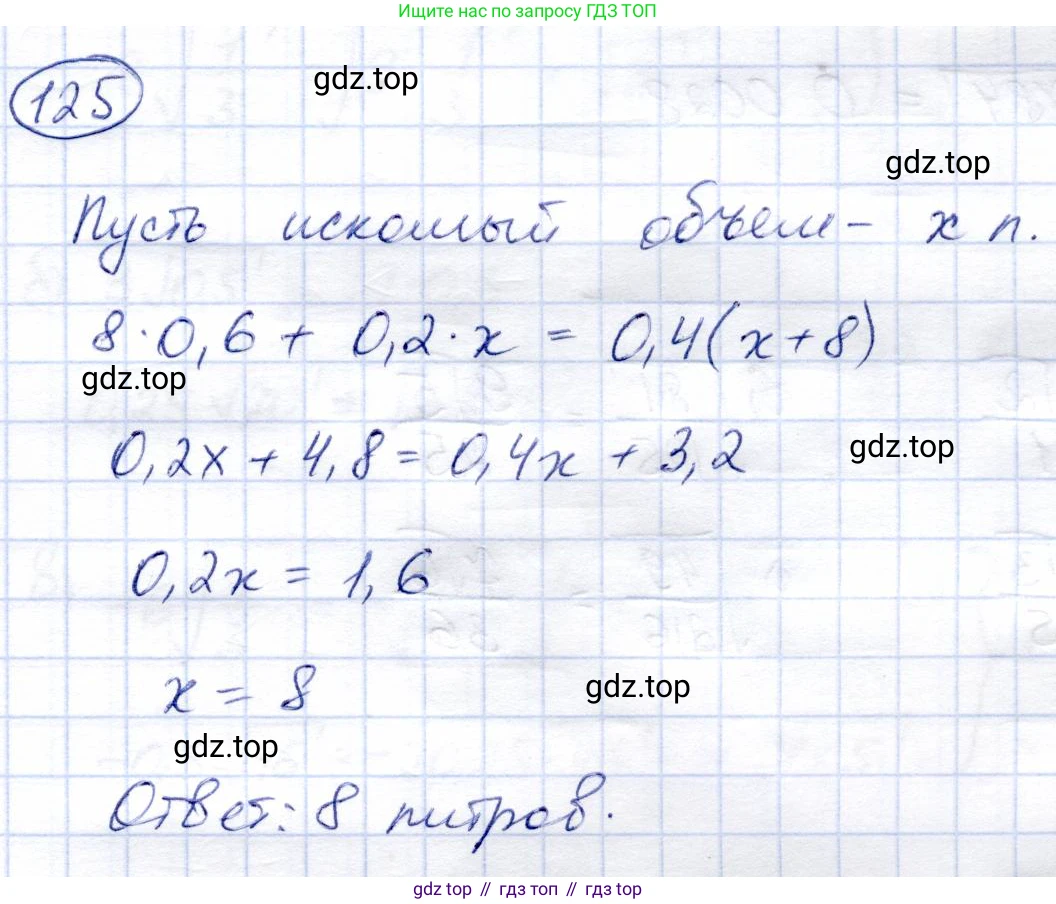 Ищите нас по запросу ГДЗ ТОП
125
gdz.top
gdz.top
Пусть искомый объем - x л.
8·0,6 + 0,2·x = 0,4(x+8)
gdz.top
0,2x + 4,8 = 0,4x + 3,2
gdz.top
0,2x = 1,6
x = 8
gdz.top
gdz.top
Ответ: 8 литров.
gdz top // гдз топ // гдз top